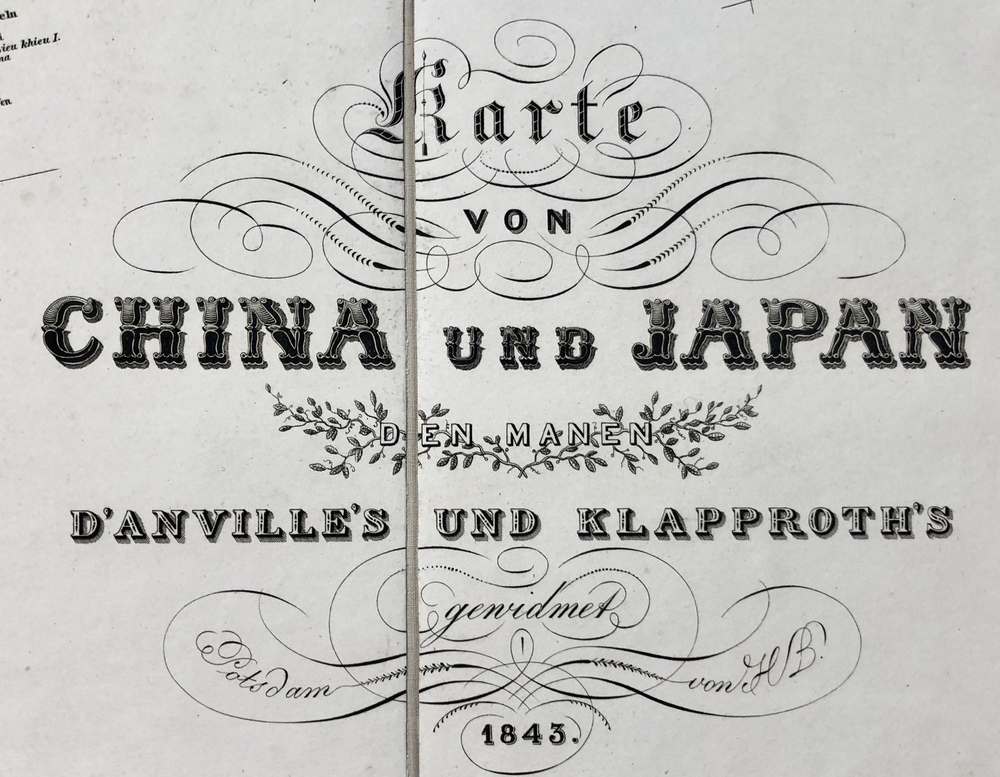 eln
vieu khieu I.
Karte
VON
CHINA UND JAPAN
DEN MANEN
D'ANVILLE'S UND KLAPPROTH'S
gewidmet
Potsdam von H B.
1843.